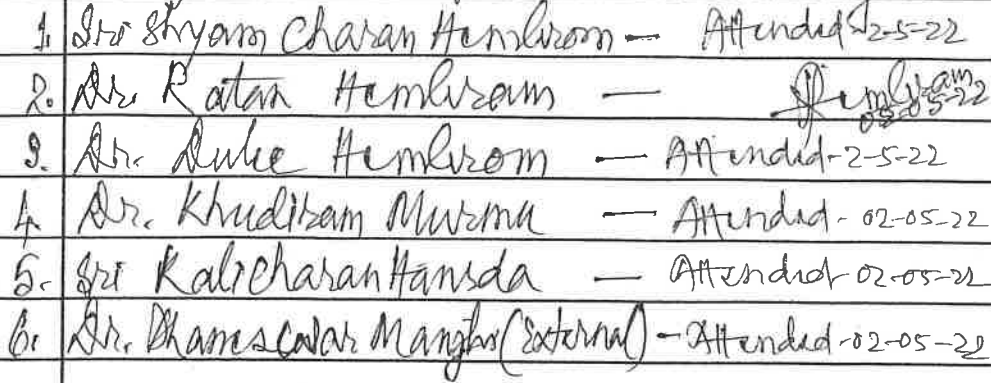 1. Sri Shyam Charan Hembrom — Attended 2-5-22
2. Dr. Ratan Hembram — Hembram 02-05-22
3. Dr. Duke Hembrom — Attended - 2-5-22
4. Dr. Khudiram Murmu — Attended - 02-05-22
5. Sri Kalicharan Hansda — Attended 02-05-22
6. Dr. Dhaneswar Manjhi (External) - Attended - 02-05-22